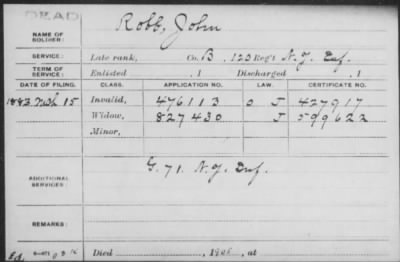 DEAD
NAME OF SOLDIER: Robb, John
SERVICE: Late rank, Co. B, 123 Reg't N.Y. Inf.
TERM OF SERVICE: Enlisted , 1 Discharged , 1
DATE OF FILING. CLASS. APPLICATION NO. LAW. CERTIFICATE NO.
1883 Mch 15 Invalid, 476113 O J 427917
Widow, 827430 J 599622
Minor,
ADDITIONAL SERVICES: G. 71. N.Y. Inf.
REMARKS:
Died , 190 , at